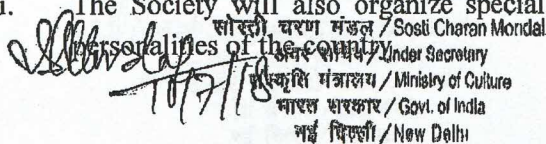 i. The Society will also organize special
personalities of the country
सोस्ती चरण मंडल / Sosti Charan Mondal
अवर सचिव / Under Secretary
संस्कृति मंत्रालय / Ministry of Culture
भारत सरकार / Govt. of India
नई दिल्ली / New Delhi